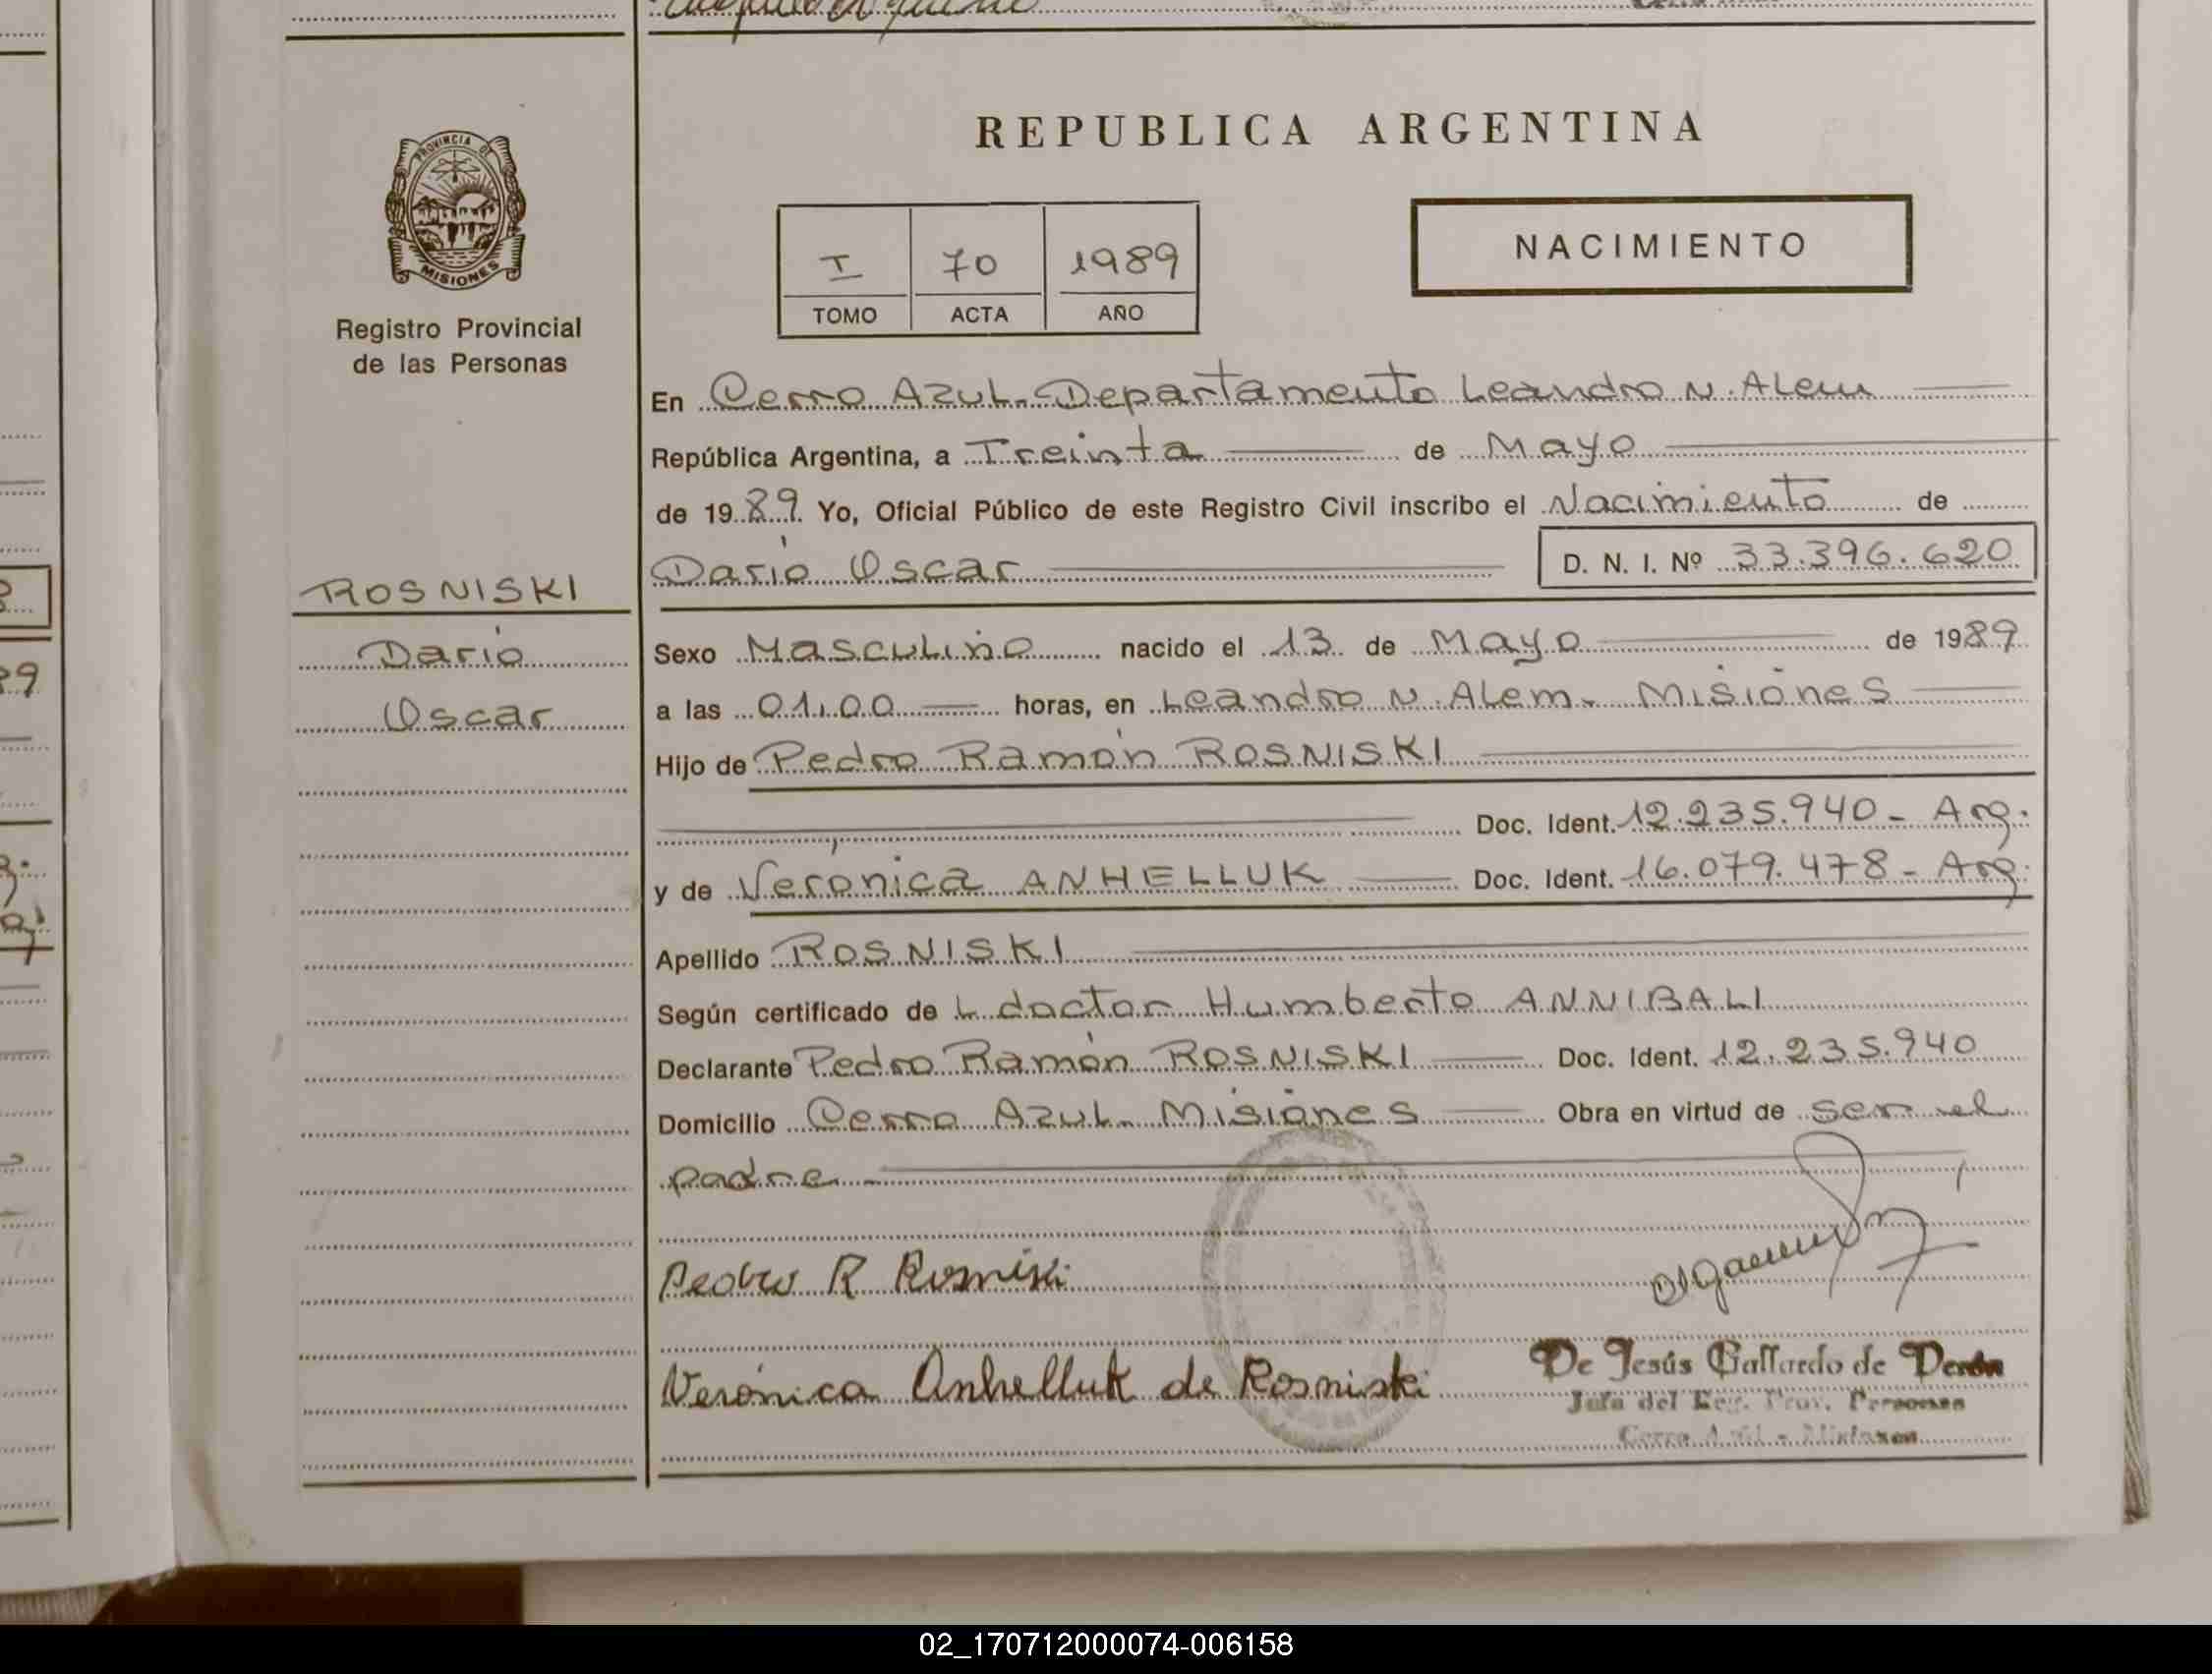 REPUBLICA ARGENTINA
PROVINCIA DE
MISIONES
Registro Provincial
de las Personas
I 70 1989
TOMO ACTA AÑO
NACIMIENTO
En Cerro Azul - Departamento Leandro N. Alem
República Argentina, a Treinta de Mayo
de 1989 Yo, Oficial Público de este Registro Civil inscribo el Nacimiento de
Darío Oscar D. N. I. Nº 33.396.620
ROSNISKI
Darío
Oscar
Sexo Masculino nacido el 13 de Mayo de 1989
a las 01,00 horas, en Leandro N. Alem - Misiones
Hijo de Pedro Ramón ROSNISKI
Doc. Ident. 12.235.940 - Arg.
y de Verónica ANHELLUK Doc. Ident. 16.079.478 - Arg.
Apellido ROSNISKI
Según certificado de L doctor Humberto ANNIBALI
Declarante Pedro Ramón ROSNISKI Doc. Ident. 12.235.940
Domicilio Cerro Azul - Misiones Obra en virtud de ser el
padre
Pedro R Rosniski
Verónica Anhelluk de Rosniski
De Jesús Gallardo de Derón
Jefa del Reg. Prov. Personas
Cerro Azul - Misiones
02_170712000074-006158